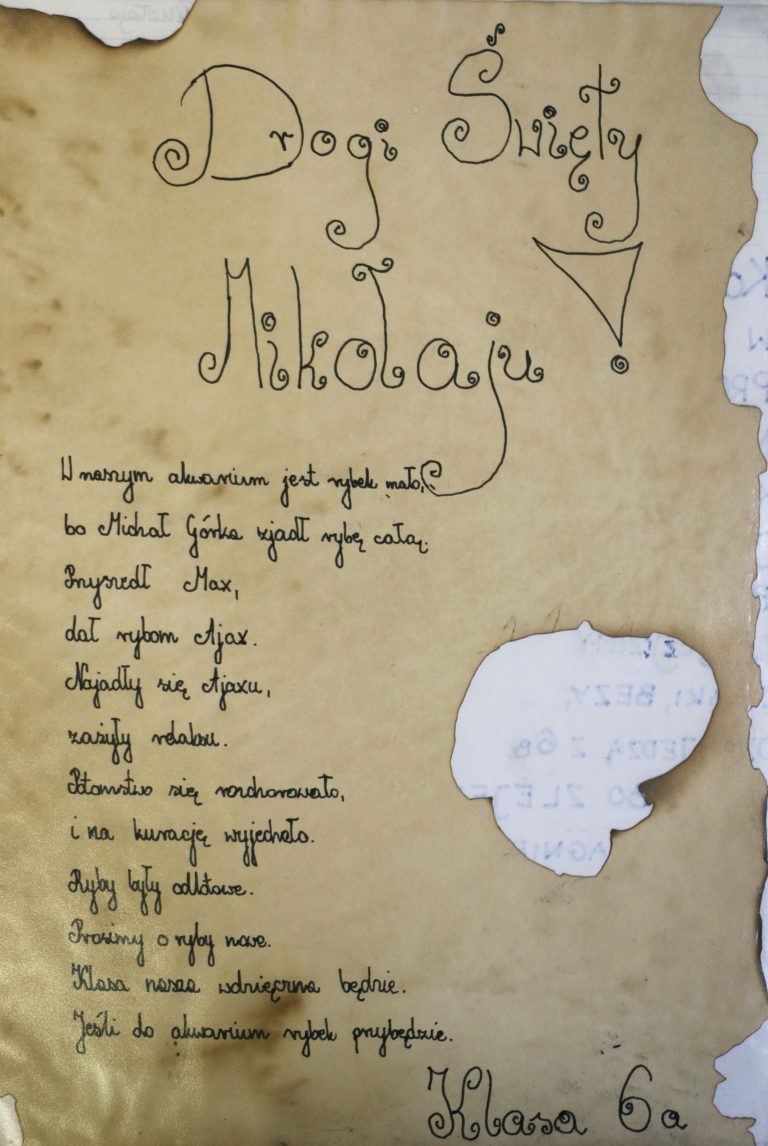 Drogi Święty
Mikołaju!
W naszym akwarium jest rybek mało,
bo Michał Górka zjadł rybę całą.
Przyszedł Max,
dał rybom Ajax.
Najadły się Ajaxu,
zażyły relaksu.
Ptomstwo się rozchorowało,
i na kurację wyjechało.
Ryby były odlotowe.
Prosimy o ryby nowe.
Klasa nasza wdzięczna będzie.
Jeśli do akwarium rybek przybędzie.
Klasa 6a
BEZY,
Z 6B